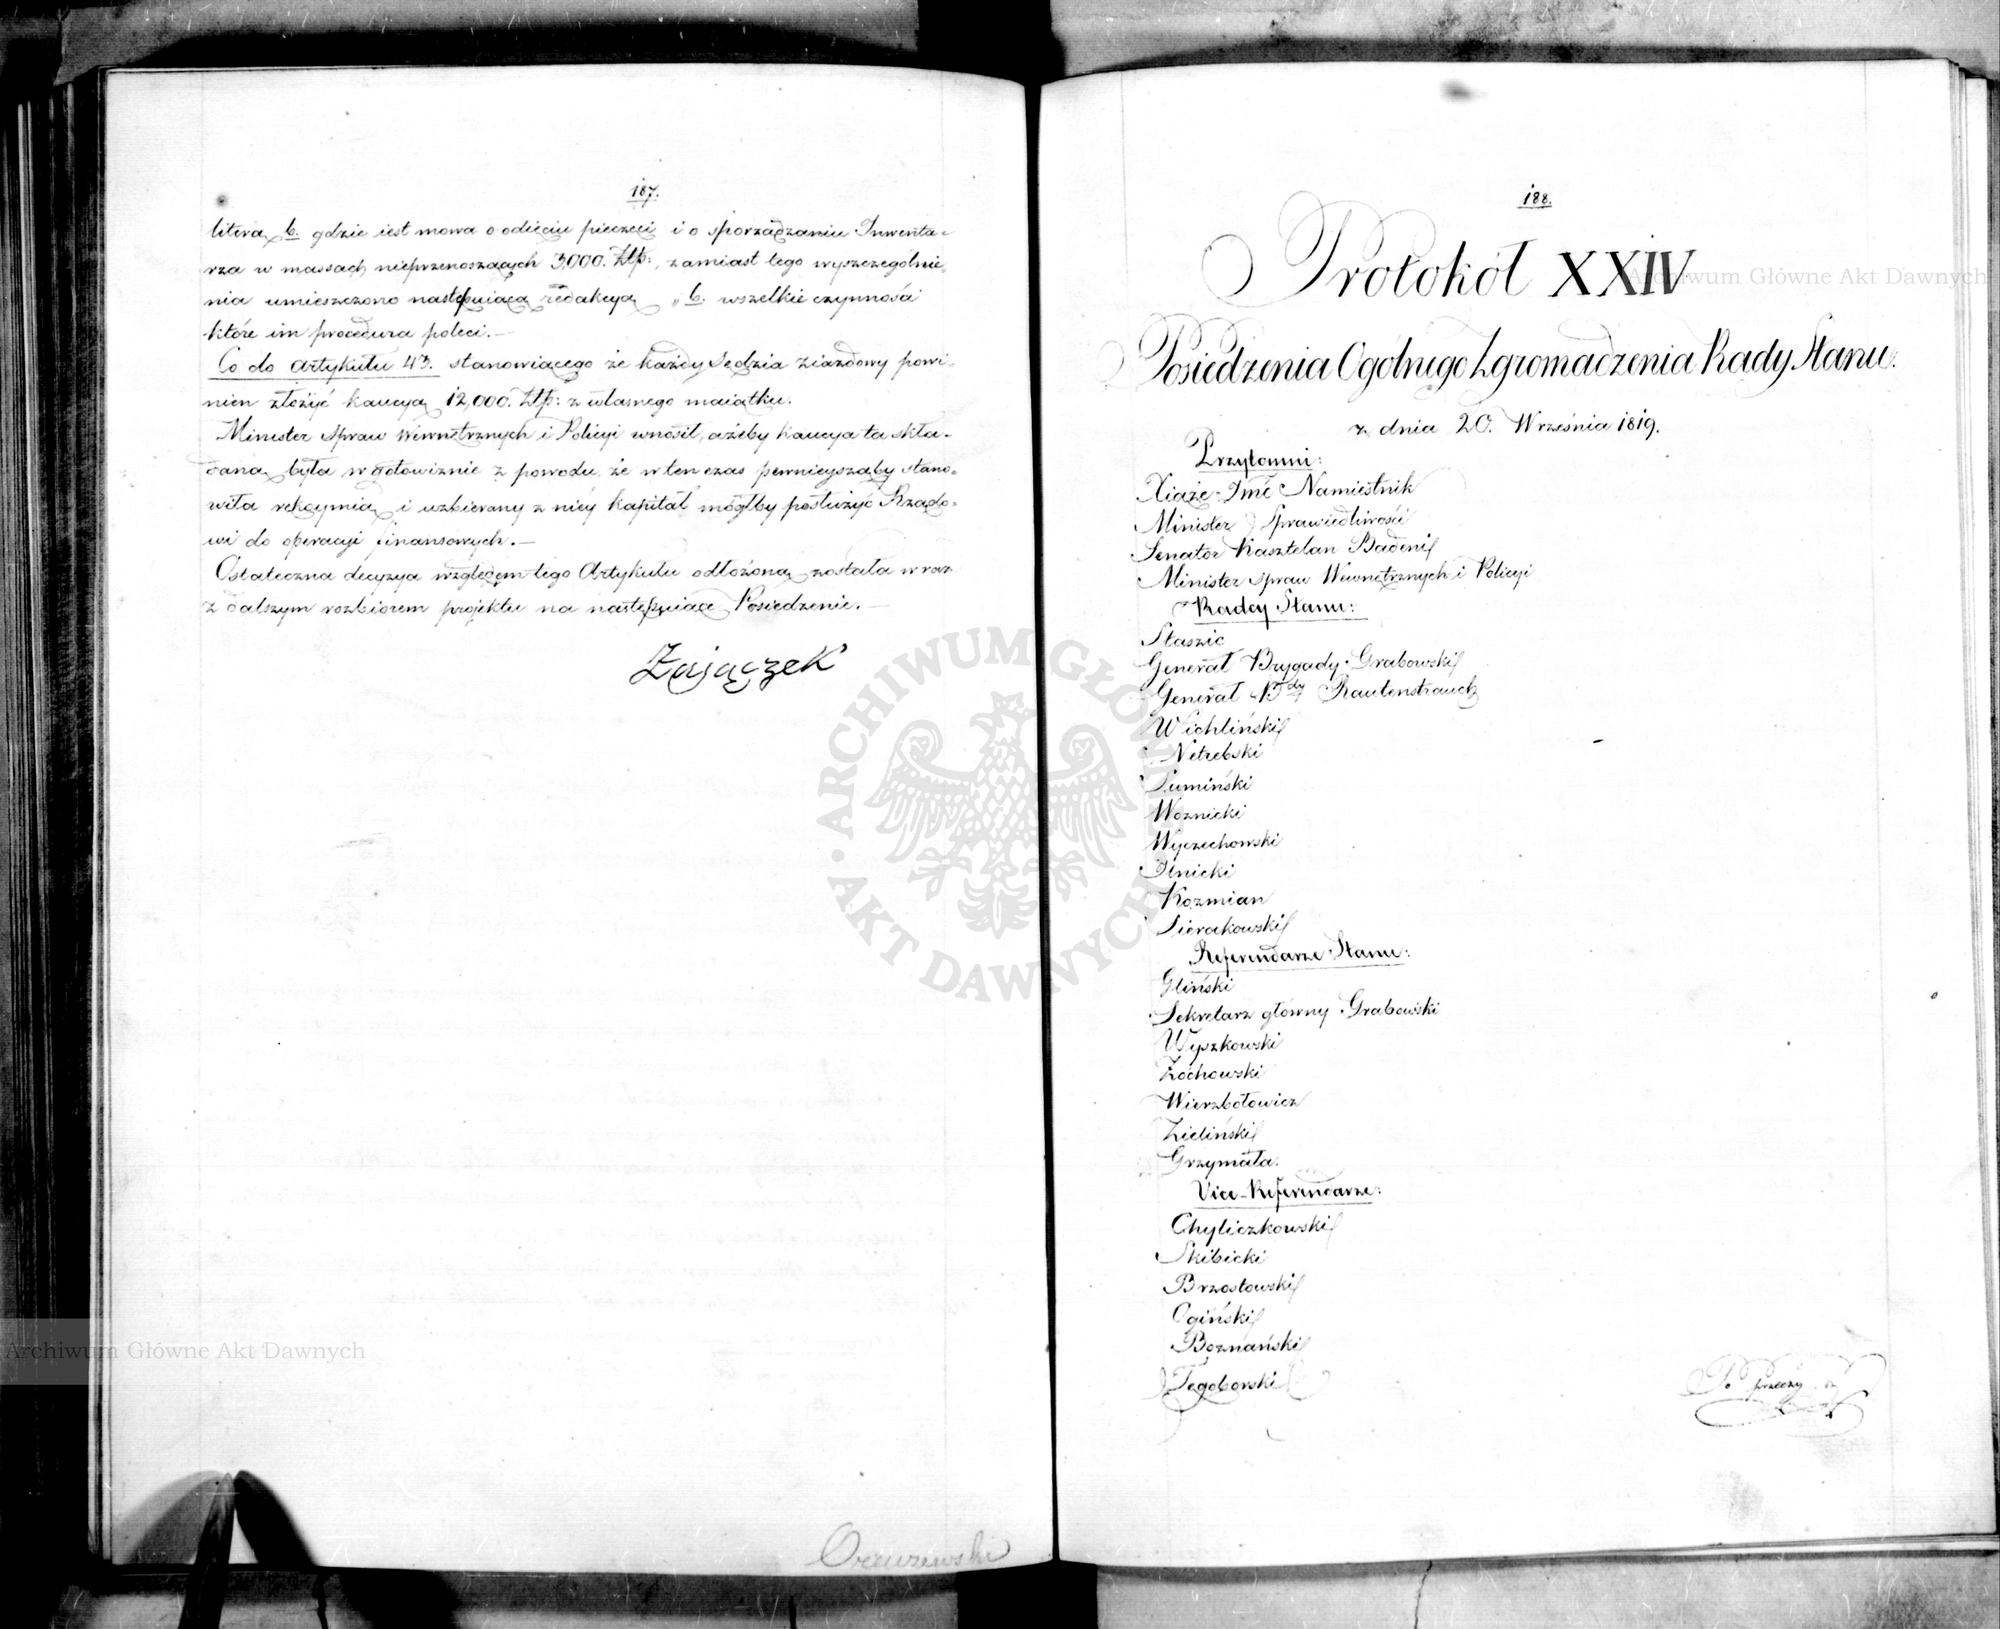 187.
litera b. gdzie iest mowa o odięciu pieczęci i o sporządzaniu Inwenta-
rza w massach nieprzenoszących 3,000. Złp:, zamiast tego wyszczególnie-
nia umieszczono następuiącą redakcyą „b. wszelkie czynności
które im procedura poleci.—
Co do Artykułu 43. stanowiącego że każdy Sędzia ziazdowy powi-
nien złożyć kaucyą 12,000. Złp: z własnego maiątku.
Minister Spraw Wewnętrznych i Policyi wnosił, ażeby kaucya ta skła-
daną była w gotowiźnie z powodu, że w ten czas pewnieyszaby stano-
wiła rękoymią, i uzbierany z niéy kapitał mógłby posłużyć Rządo-
wi do operacyi finansowych.—
Ostateczna decyzya względem tego Artykułu odłożoną została wraz
z dalszym rozbiorem projektu na następuiące Posiedzenie.—
Zajączek
188.
Protokół XXIV
Posiedzenia Ogólnego Zgromadzenia Rady Stanu.
z dnia 20. Września 1819.
Przytomni:
Xiąże Jmć Namiestnik
Minister Sprawiedliwości
Senator Kasztelan Badeni
Minister Spraw Wewnętrznych i Policyi
Radcy Stanu:
Staszic
Generał Brygady Grabowski
Generał Bdy Rautenstrauch
Wichliński
Netrebski
Sumiński
Woznicki
Wyczechowski
Ilnicki
Kozmian
Sierakowski
Referendarze Stanu:
Gliński
Sekretarz główny Grabowski
Wyszkowski
Żochowski
Wierzbołowicz
Zieliński
Grzymała.
Vice-Referendarze:
Chyliczkowski
Skibicki
Brzostowski
Ogiński
Boznański
Tęgoborski
Archiwum Główne Akt Dawnych
ARCHIWUM GŁÓWNE AKT DAWNYCH
Archiwum Główne Akt Dawnych